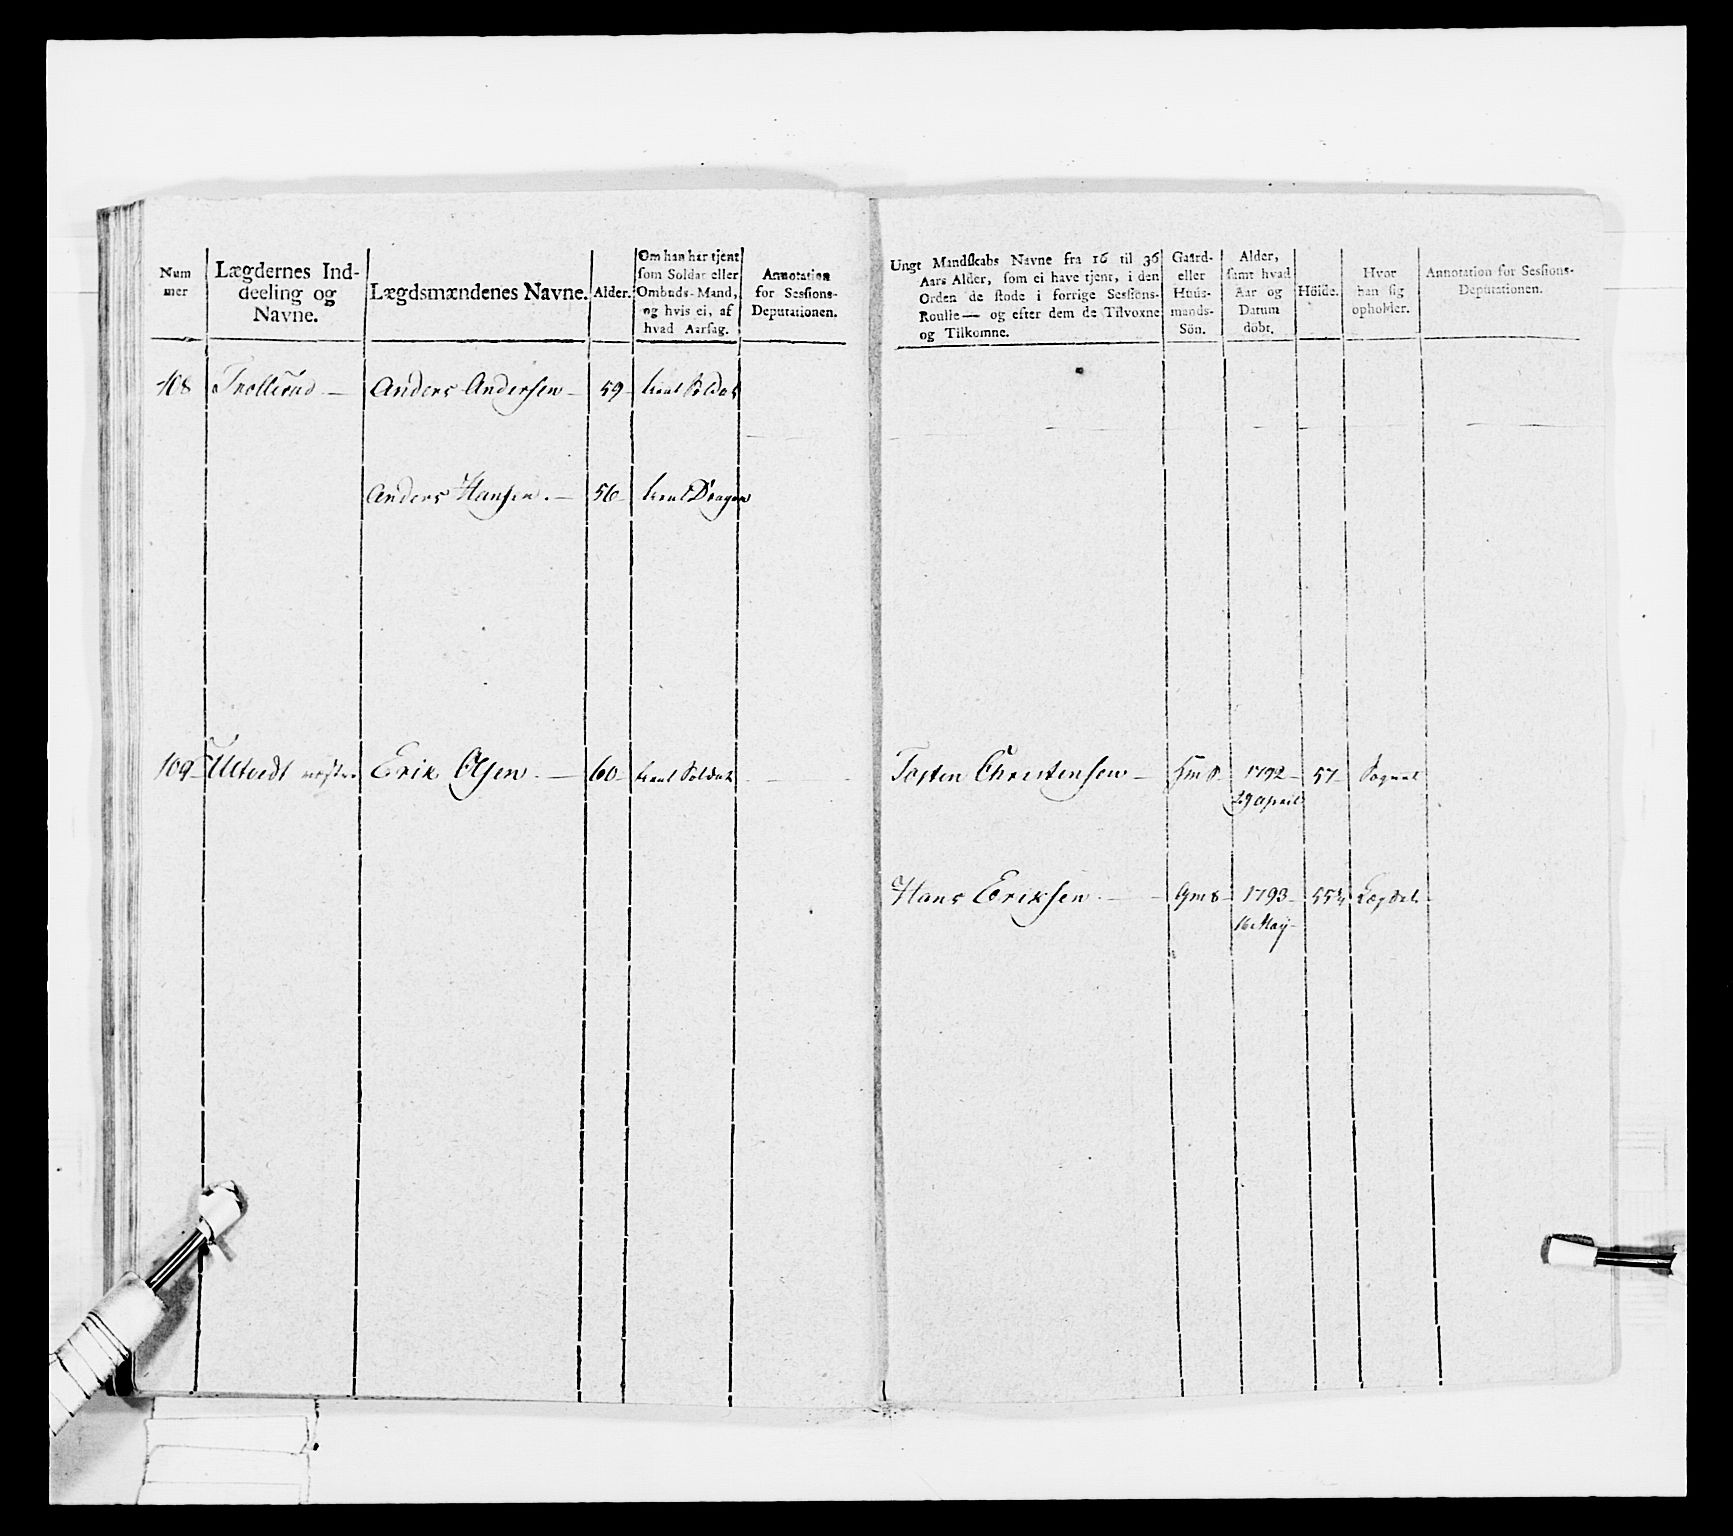 Num
mer
Lægdernes Ind-
deeling og
Navne.
Lægdsmændenes Navne.
Alder.
Om han har tjent
som Soldat eller
Ombuds-Mand,
og hvis ei, af
hvad Aarsag.
Annotation
for Sessions-
Deputationen.
Ungt Mandskabs Navne fra 16 til 36
Aars Alder, som ei have tjent, i den
Orden de stode i forrige Sessions-
Roulle — og efter dem de Tilvoxne
og Tilkomne.
Gaard-
eller
Huus-
mands-
Sön.
Alder,
samt hvad
Aar og
Datum
döbt.
Höide.
Hvor
han sig
opholder.
Annotation for Sessions-
Deputationen.
108 Trollerud — Anders Andersen — 59 — Soldat
Anders Hansen. — 56 — Dragon
109 — Ultvedt Erik Olsen. — 60 — Soldat
Tosten Christensen — Hm S — 1792 — 57 — Sognet
29 April
Hans Eriksen. — Gm S — 1793 — Lægdet
16 May —